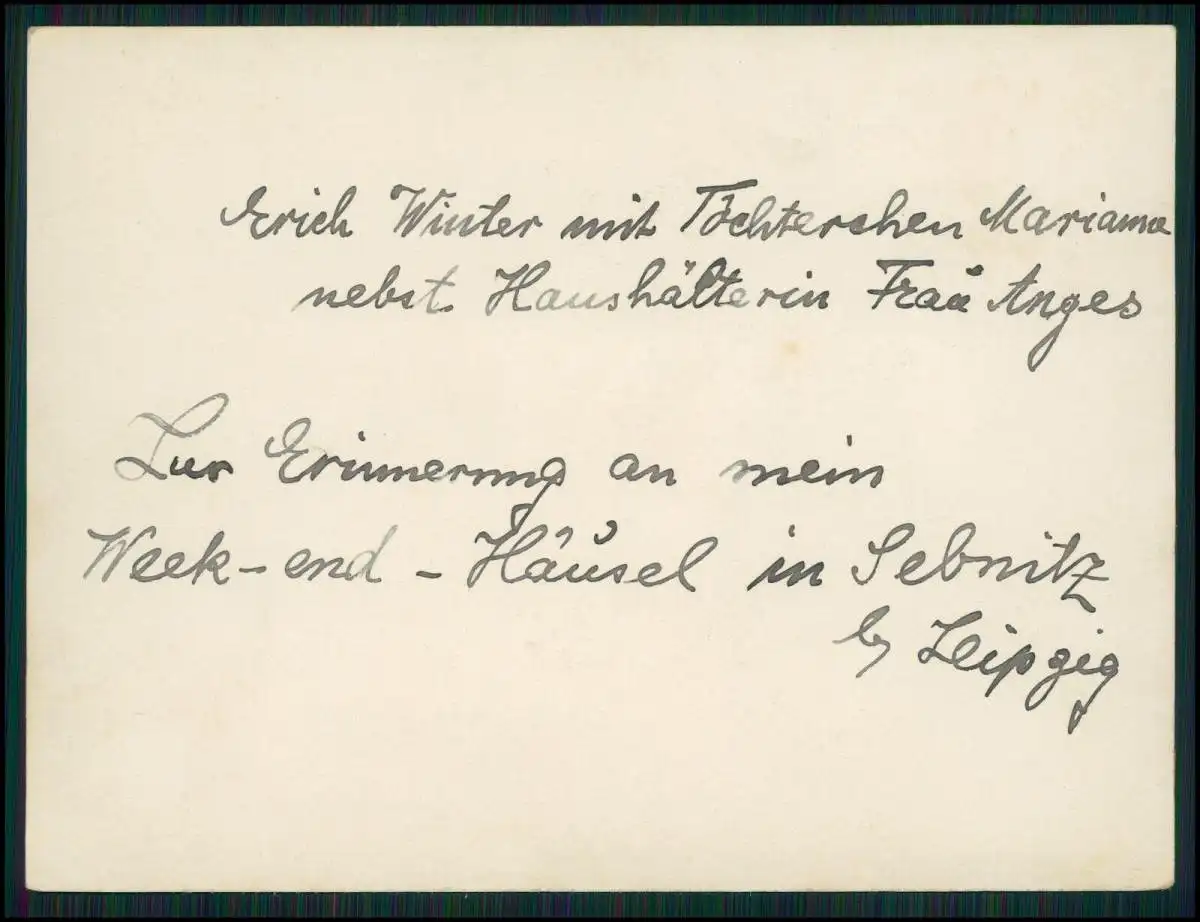 Erich Winter mit Töchterchen Marianne
nebst Haushälterin Frau Anges
Zur Erinnerung an mein
Week-end-Häusel in Sebnitz
by Leipzig